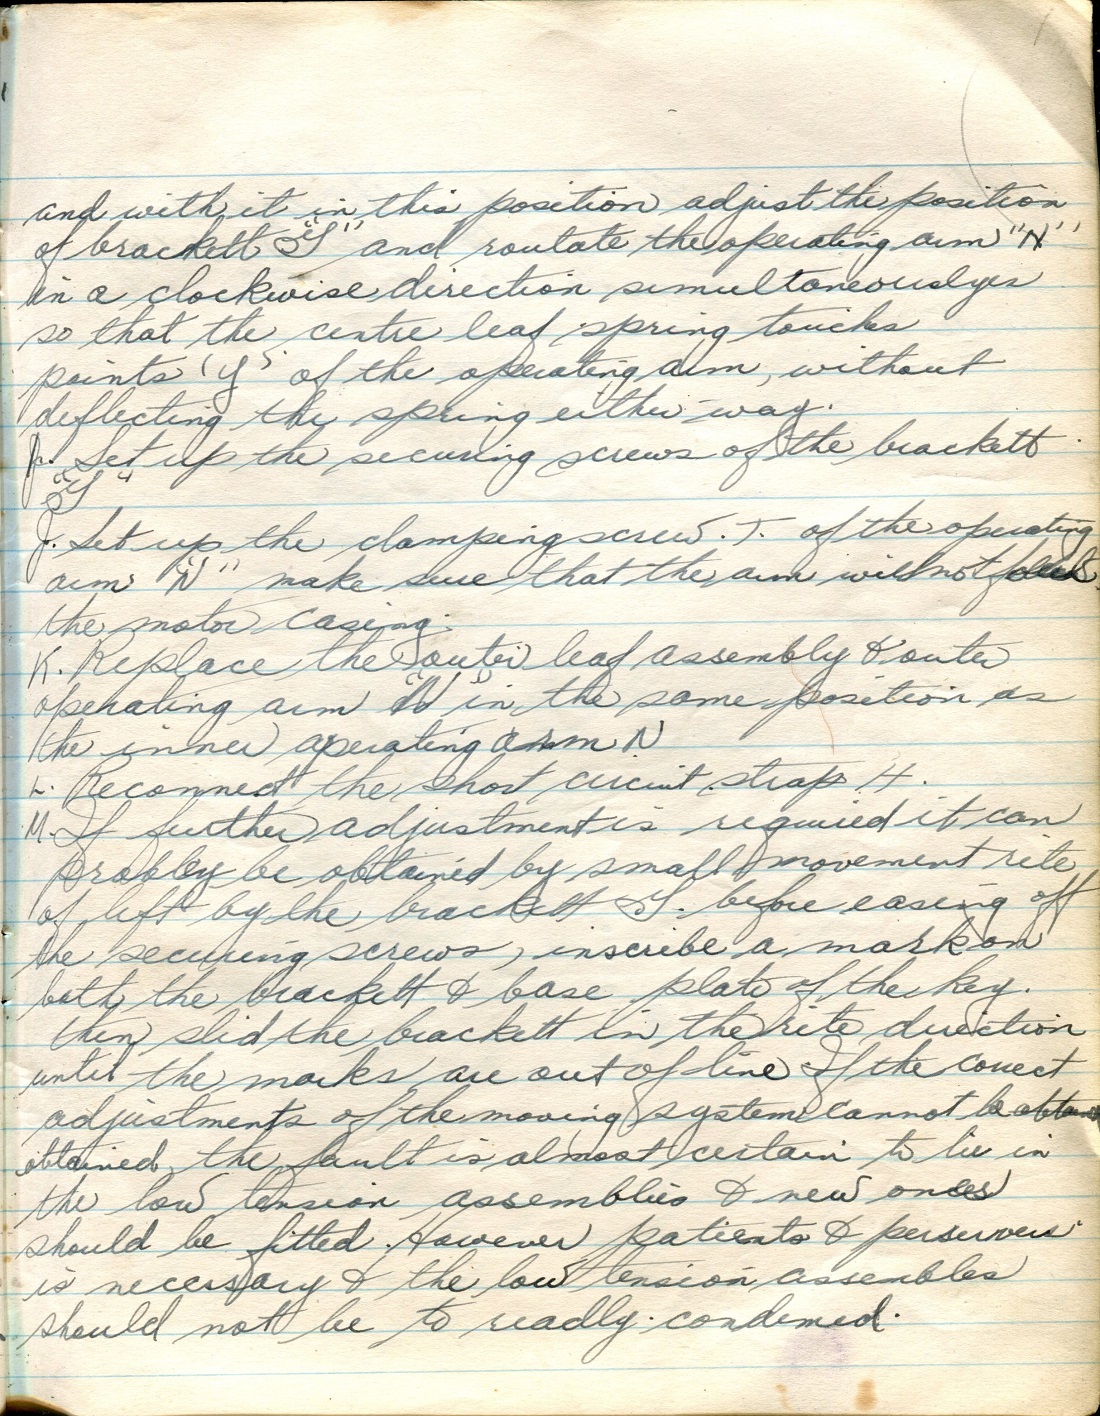 and with it in this position adjust the position
of brackett "S" and routate the operating arm "N"
in a clockwise direction simultaneouslyes
so that the centre leaf spring touches
points 'y' of the operating arm, without
deflecting the spring either way.
Set up the securing screws of the brackett
"S"
J. Set up the clamping screw. T. of the operating
arm "N" make sure that the arm will not
the motor casing.
K. Replace the outer leaf assembly & outer
operating arm "N" in the same position as
the inner operating arm N
L. Reconnect the short circuit strap H.
M. If further adjustment is required it can
Probley be obtained by small movement rite
of left by the brackett S. before easing off
the securing screws, inscribe a mark on
both the brackett & base plate of the key.
then slid the brackett in the rite direction
until the marks are out of line If the correct
adjustments of the moving system cannot be obtained
obtained, the fault is almost certain to lie in
the low tension assemblies & new ones
should be fitted. However patients & perserveres
is necessary & the low tension assembles
should not be to readly condemed.